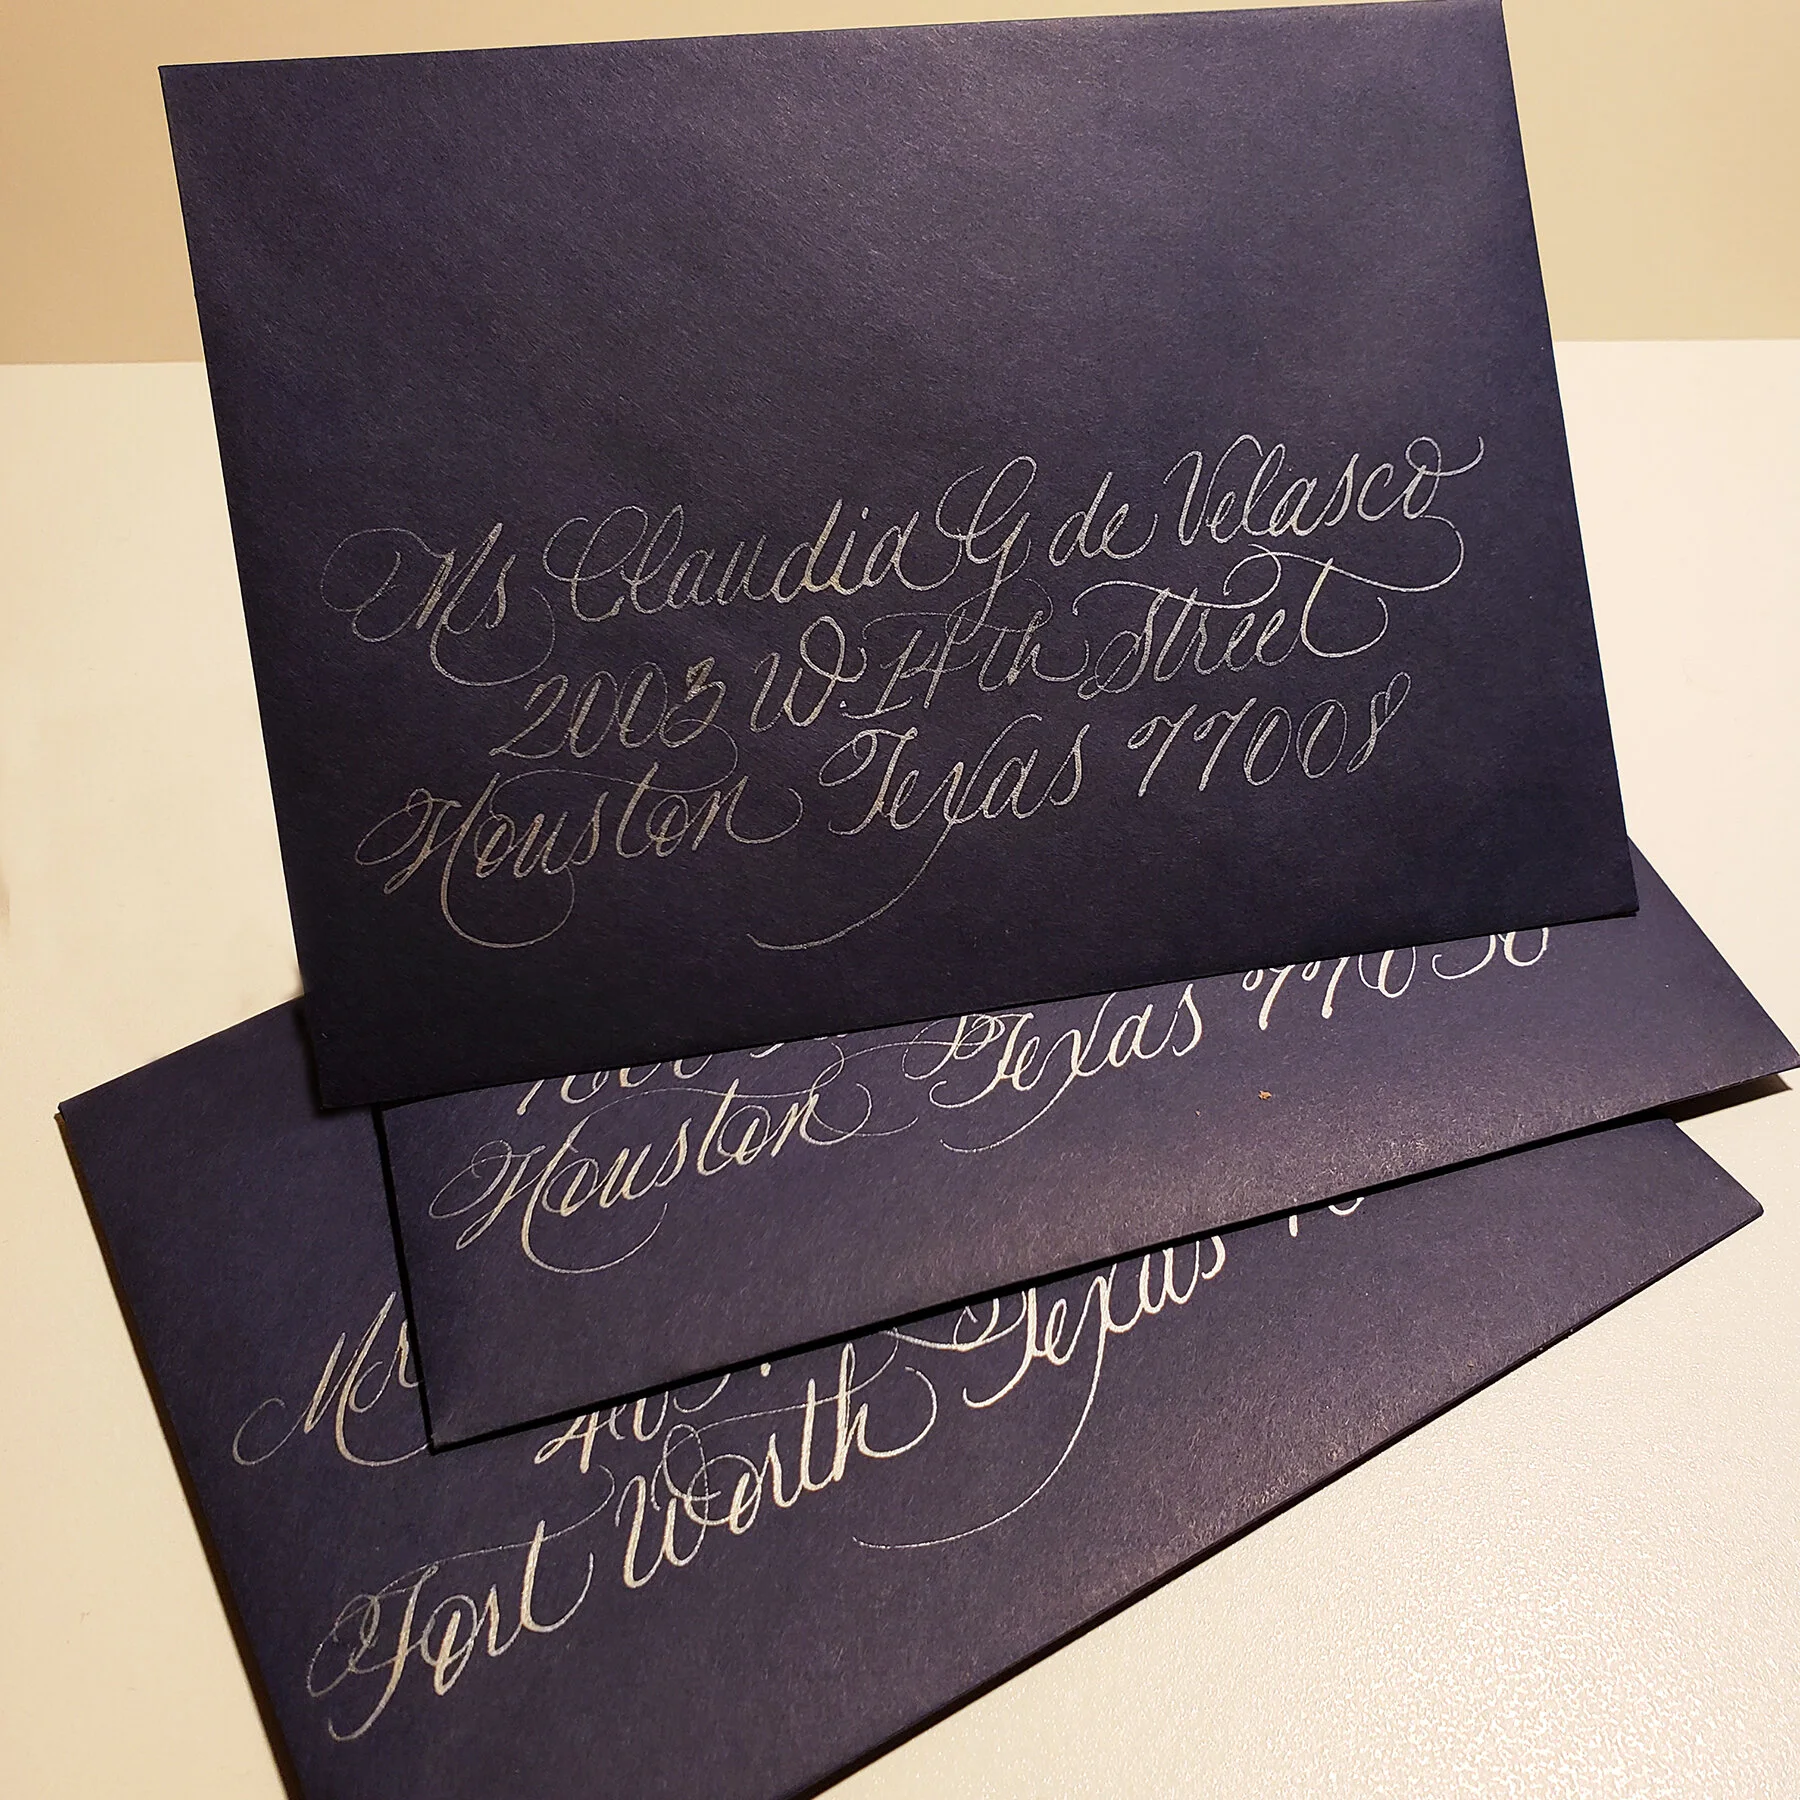 Ms Claudia G de Velasco
2003 W. 14th Street
Houston Texas 77008
Houston Texas
Mr
Fort Worth Texas